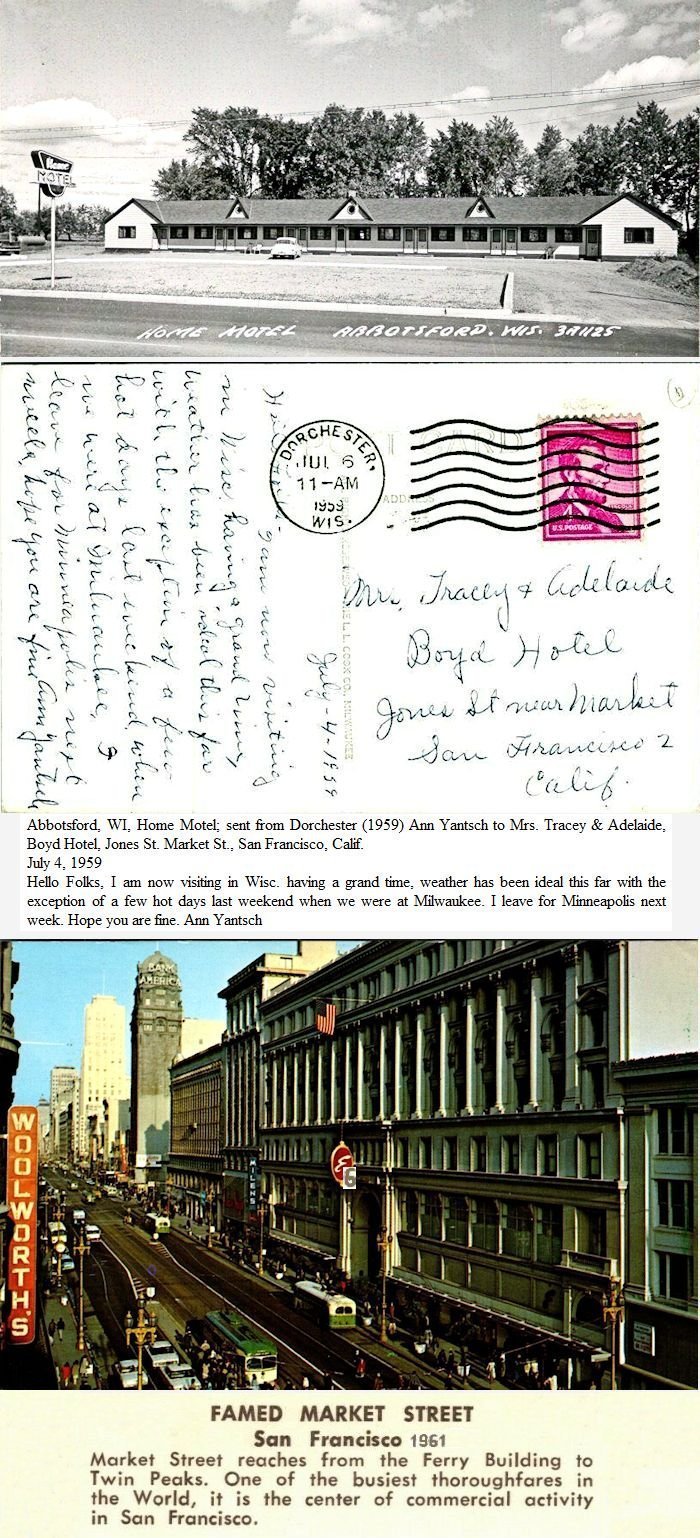 Home
MOTEL
HOME MOTEL ABBOTSFORD. WIS. 3R1125
DORCHESTER,
JUL 6
11-AM
1959
WIS.
ADDRESS
U.S. POSTAGE
July-4-1959
am now visiting
in Wisc. having a grand time,
weather has been ideal this far
with the exception of a few
hot days last weekend when
we were at Milwaukee. I
leave for Minneapolis next
week, hope you are fine Ann Yantsch
L. COOK CO., MILWAUKEE
Mrs. Tracey & Adelaide
Boyd Hotel
Jones St near Market
San Francisco 2
Calif.
Abbotsford, WI, Home Motel; sent from Dorchester (1959) Ann Yantsch to Mrs. Tracey & Adelaide,
Boyd Hotel, Jones St. Market St., San Francisco, Calif.
July 4, 1959
Hello Folks, I am now visiting in Wisc. having a grand time, weather has been ideal this far with the
exception of a few hot days last weekend when we were at Milwaukee. I leave for Minneapolis next
week. Hope you are fine. Ann Yantsch
BANK OF
AMERICA
WOOLWORTH'S
E
6
FAMED MARKET STREET
San Francisco 1961
Market Street reaches from the Ferry Building to
Twin Peaks. One of the busiest thoroughfares in
the World, it is the center of commercial activity
in San Francisco.